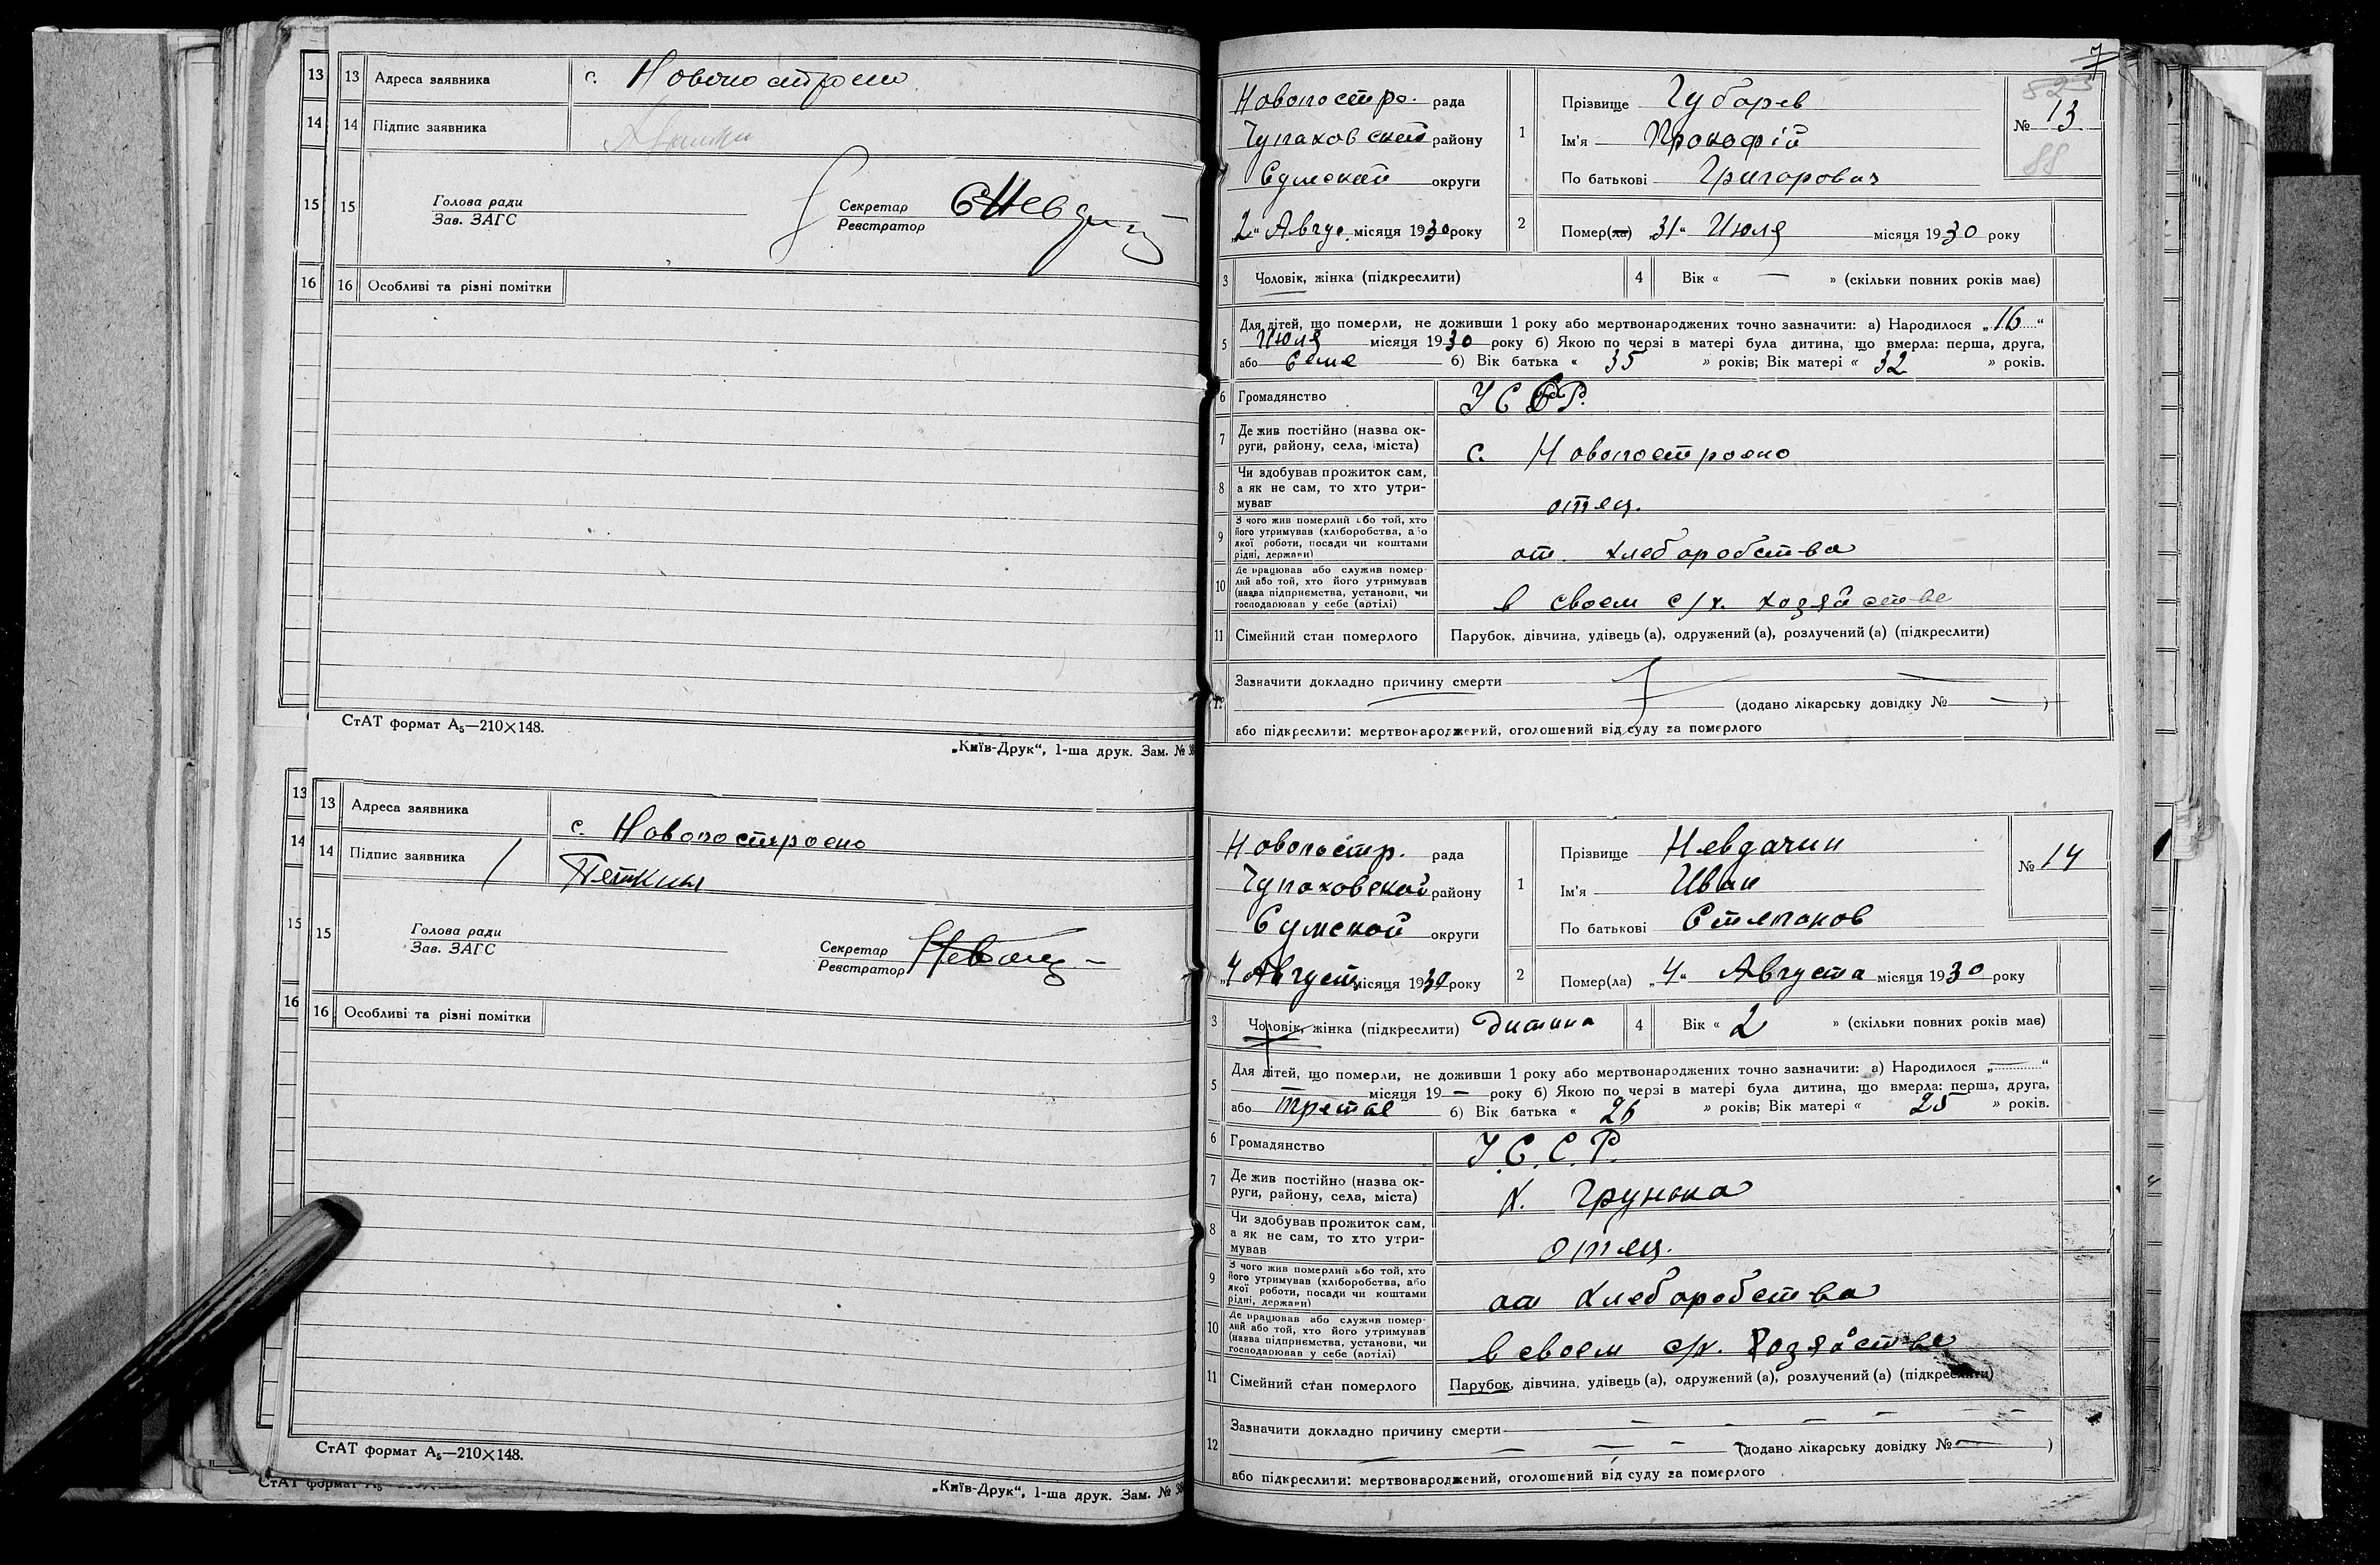 13 13 Адреса заявника с. Новопостроено
14 14 Підпис заявника
15 15 Голова ради
Зав. ЗАГС
Секретар
Реєстратор
16 16 Особливі та різні помітки
СтАТ формат А₅—210×148.
„Київ-Друк“, 1-ша друк. Зам. №
13 13 Адреса заявника с. Новопостроено
14 14 Підпис заявника
15 15 Голова ради
Зав. ЗАГС
Секретар
Реєстратор
16 16 Особливі та різні помітки
СтАТ формат А₅—210×148.
„Київ-Друк“, 1-ша друк. Зам. №
СтАТ формат А₅
7
Новопостро. рада
Чупаховской району
Сумской округи
„2“ Авгус. місяця 1930 року
1 Прізвище Губарев
Ім'я Прокофій
По батькові Григорович
№ 13
88
2 Помер(ла) „31“ Июля місяця 1930 року
3 Чоловік, жінка (підкреслити) 4 Вік « — » (скільки повних років має)
5 Для дітей, що померли, не доживши 1 року або мертвонароджених точно зазначити: а) Народилося „16“
Июля місяця 1930 року б) Якою по черзі в матері була дитина, що вмерла: перша, друга,
або Семе б) Вік батька « 35 » років; Вік матері « 32 » років.
6 Громадянство УССР.
7 Де жив постійно (назва ок-
руги, району, села, міста) с. Новопостроено
8 Чи здобував прожиток сам,
а як не сам, то хто утри-
мував отец.
9 З чого жив померлий або той, хто
його утримував (хліборобства, або
якої роботи, посади чи коштами
рідні, держави) от. хлеборобства
10 Де працював або служив помер-
лий або той, хто його утримував
(назва підприємства, установи, чи
господарював у себе (артілі) в своем с/х. хозяйстве
11 Сімейний стан померлого Парубок, дівчина, удівець (а), одружений (а), розлучений (а) (підкреслити)
Зазначити докладно причину смерти —
(додано лікарську довідку № — )
або підкреслити: мертвонароджений, оголошений від суду за померлого
Новопостр. рада
Чупаховской району
Сумской округи
„4 Август місяця 1930 року
1 Прізвище Невдачин
Ім'я Иван
По батькові Степанов
№ 14
2 Помер(ла) „4“ Августа місяця 1930 року
3 Чоловік, жінка (підкреслити) дитина 4 Вік « 2 » (скільки повних років має)
5 Для дітей, що померли, не доживши 1 року або мертвонароджених точно зазначити: а) Народилося „—“
— місяця 19 — року б) Якою по черзі в матері була дитина, що вмерла: перша, друга,
або третье б) Вік батька « 26 » років; Вік матері « 25 » років.
6 Громадянство У.С.С.Р.
7 Де жив постійно (назва ок-
руги, району, села, міста) х. Грунька
8 Чи здобував прожиток сам,
а як не сам, то хто утри-
мував отец.
9 З чого жив померлий або той, хто
його утримував (хліборобства, або
якої роботи, посади чи коштами
рідні, держави) от хлеборобства
10 Де працював або служив помер-
лий або той, хто його утримував
(назва підприємства, установи, чи
господарював у себе (артілі) в своем с/х. хозяйстве
11 Сімейний стан померлого Парубок, дівчина, удівець (а), одружений (а), розлучений (а) (підкреслити)
12 Зазначити докладно причину смерти —
(додано лікарську довідку № — )
або підкреслити: мертвонароджений, оголошений від суду за померлого